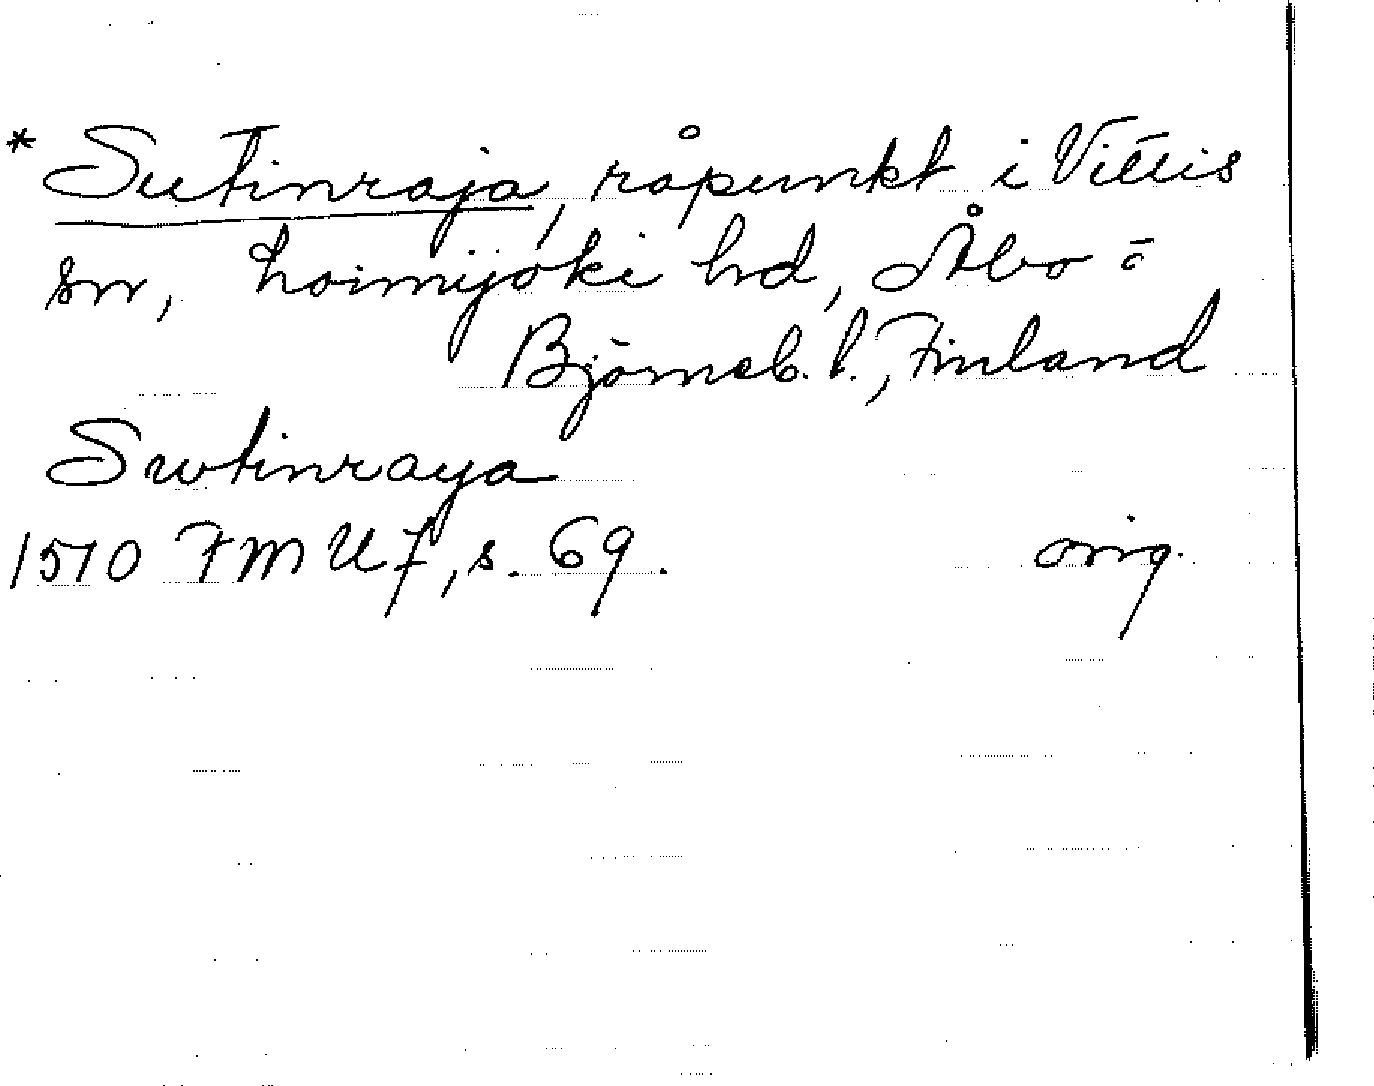 * Sutinraja, råpunkt i Vittis
sn, Loimijoki hd, Åbo o
Björneb. l., Finland
Swtinraya
1510 FMU 7, s. 69. orig.